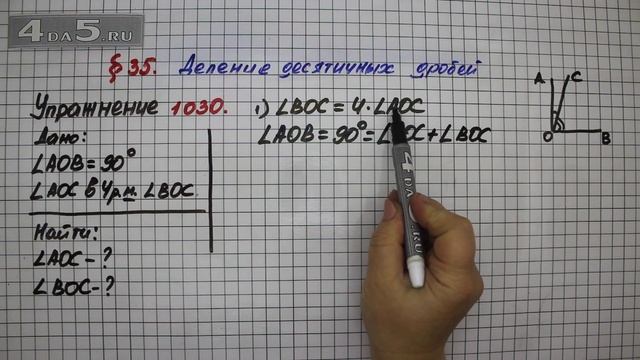 4DA5.RU
§ 35. Деление десятичных дробей
Упражнение 1030.
Дано:
∠AOB = 90°
∠AOC в 4 р. м. ∠BOC
Найти:
∠AOC - ?
∠BOC - ?
1) ∠BOC = 4 · ∠AOC
∠AOB = 90° = ∠AOC + ∠BOC
A C
O B
4DA5.RU